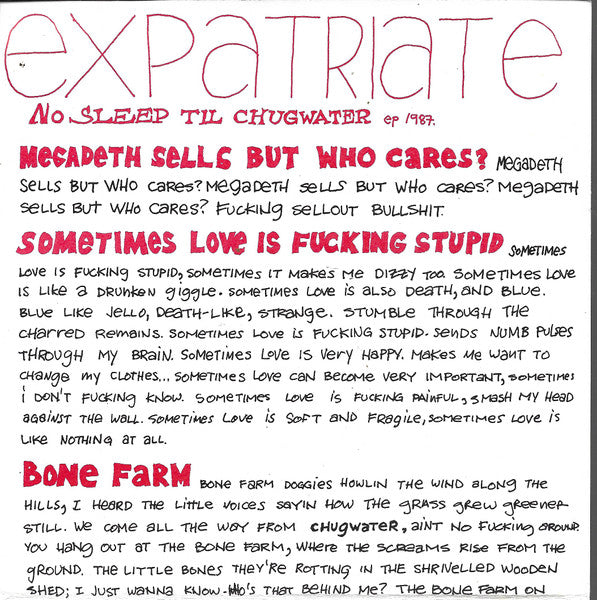 EXPATRIATE
NO SLEEP TIL CHUGWATER ep 1987.
MEGADETH SELLS BUT WHO CARES? MEGADETH
SELLS BUT WHO CARES? MEGADETH SELLS BUT WHO CARES? MEGADETH
SELLS BUT WHO CARES? FUCKING SELLOUT BULLSHIT.
SOMETIMES LOVE IS FUCKING STUPID SOMETIMES
LOVE IS FUCKING STUPID, SOMETIMES IT MAKES ME DIZZY TOO. SOMETIMES LOVE
IS LIKE A DRUNKEN GIGGLE. SOMETIMES LOVE IS ALSO DEATH, AND BLUE.
BLUE LIKE JELLO, DEATH-LIKE, STRANGE. STUMBLE THROUGH THE
CHARRED REMAINS. SOMETIMES LOVE IS FUCKING STUPID. SENDS NUMB PULSES
THROUGH MY BRAIN. SOMETIMES LOVE IS VERY HAPPY. MAKES ME WANT TO
CHANGE MY CLOTHES... SOMETIMES LOVE CAN BECOME VERY IMPORTANT, SOMETIMES
I DON'T FUCKING KNOW. SOMETIMES LOVE IS FUCKING PAINFUL, SMASH MY HEAD
AGAINST THE WALL. SOMETIMES LOVE IS SOFT AND FRAGILE, SOMETIMES LOVE IS
LIKE NOTHING AT ALL.
BONE FARM BONE FARM DOGGIES HOWLIN THE WIND ALONG THE
HILLS, I HEARD THE LITTLE VOICES SAYIN HOW THE GRASS GREW GREENER
STILL. WE COME ALL THE WAY FROM CHUGWATER, AIN'T NO FUCKING AROUND.
YOU HANG OUT AT THE BONE FARM, WHERE THE SCREAMS RISE FROM THE
GROUND. THE LITTLE BONES THEY'RE ROTTING IN THE SHRIVELLED WOODEN
SHED; I JUST WANNA KNOW-WHO'S THAT BEHIND ME? THE BONE FARM ON